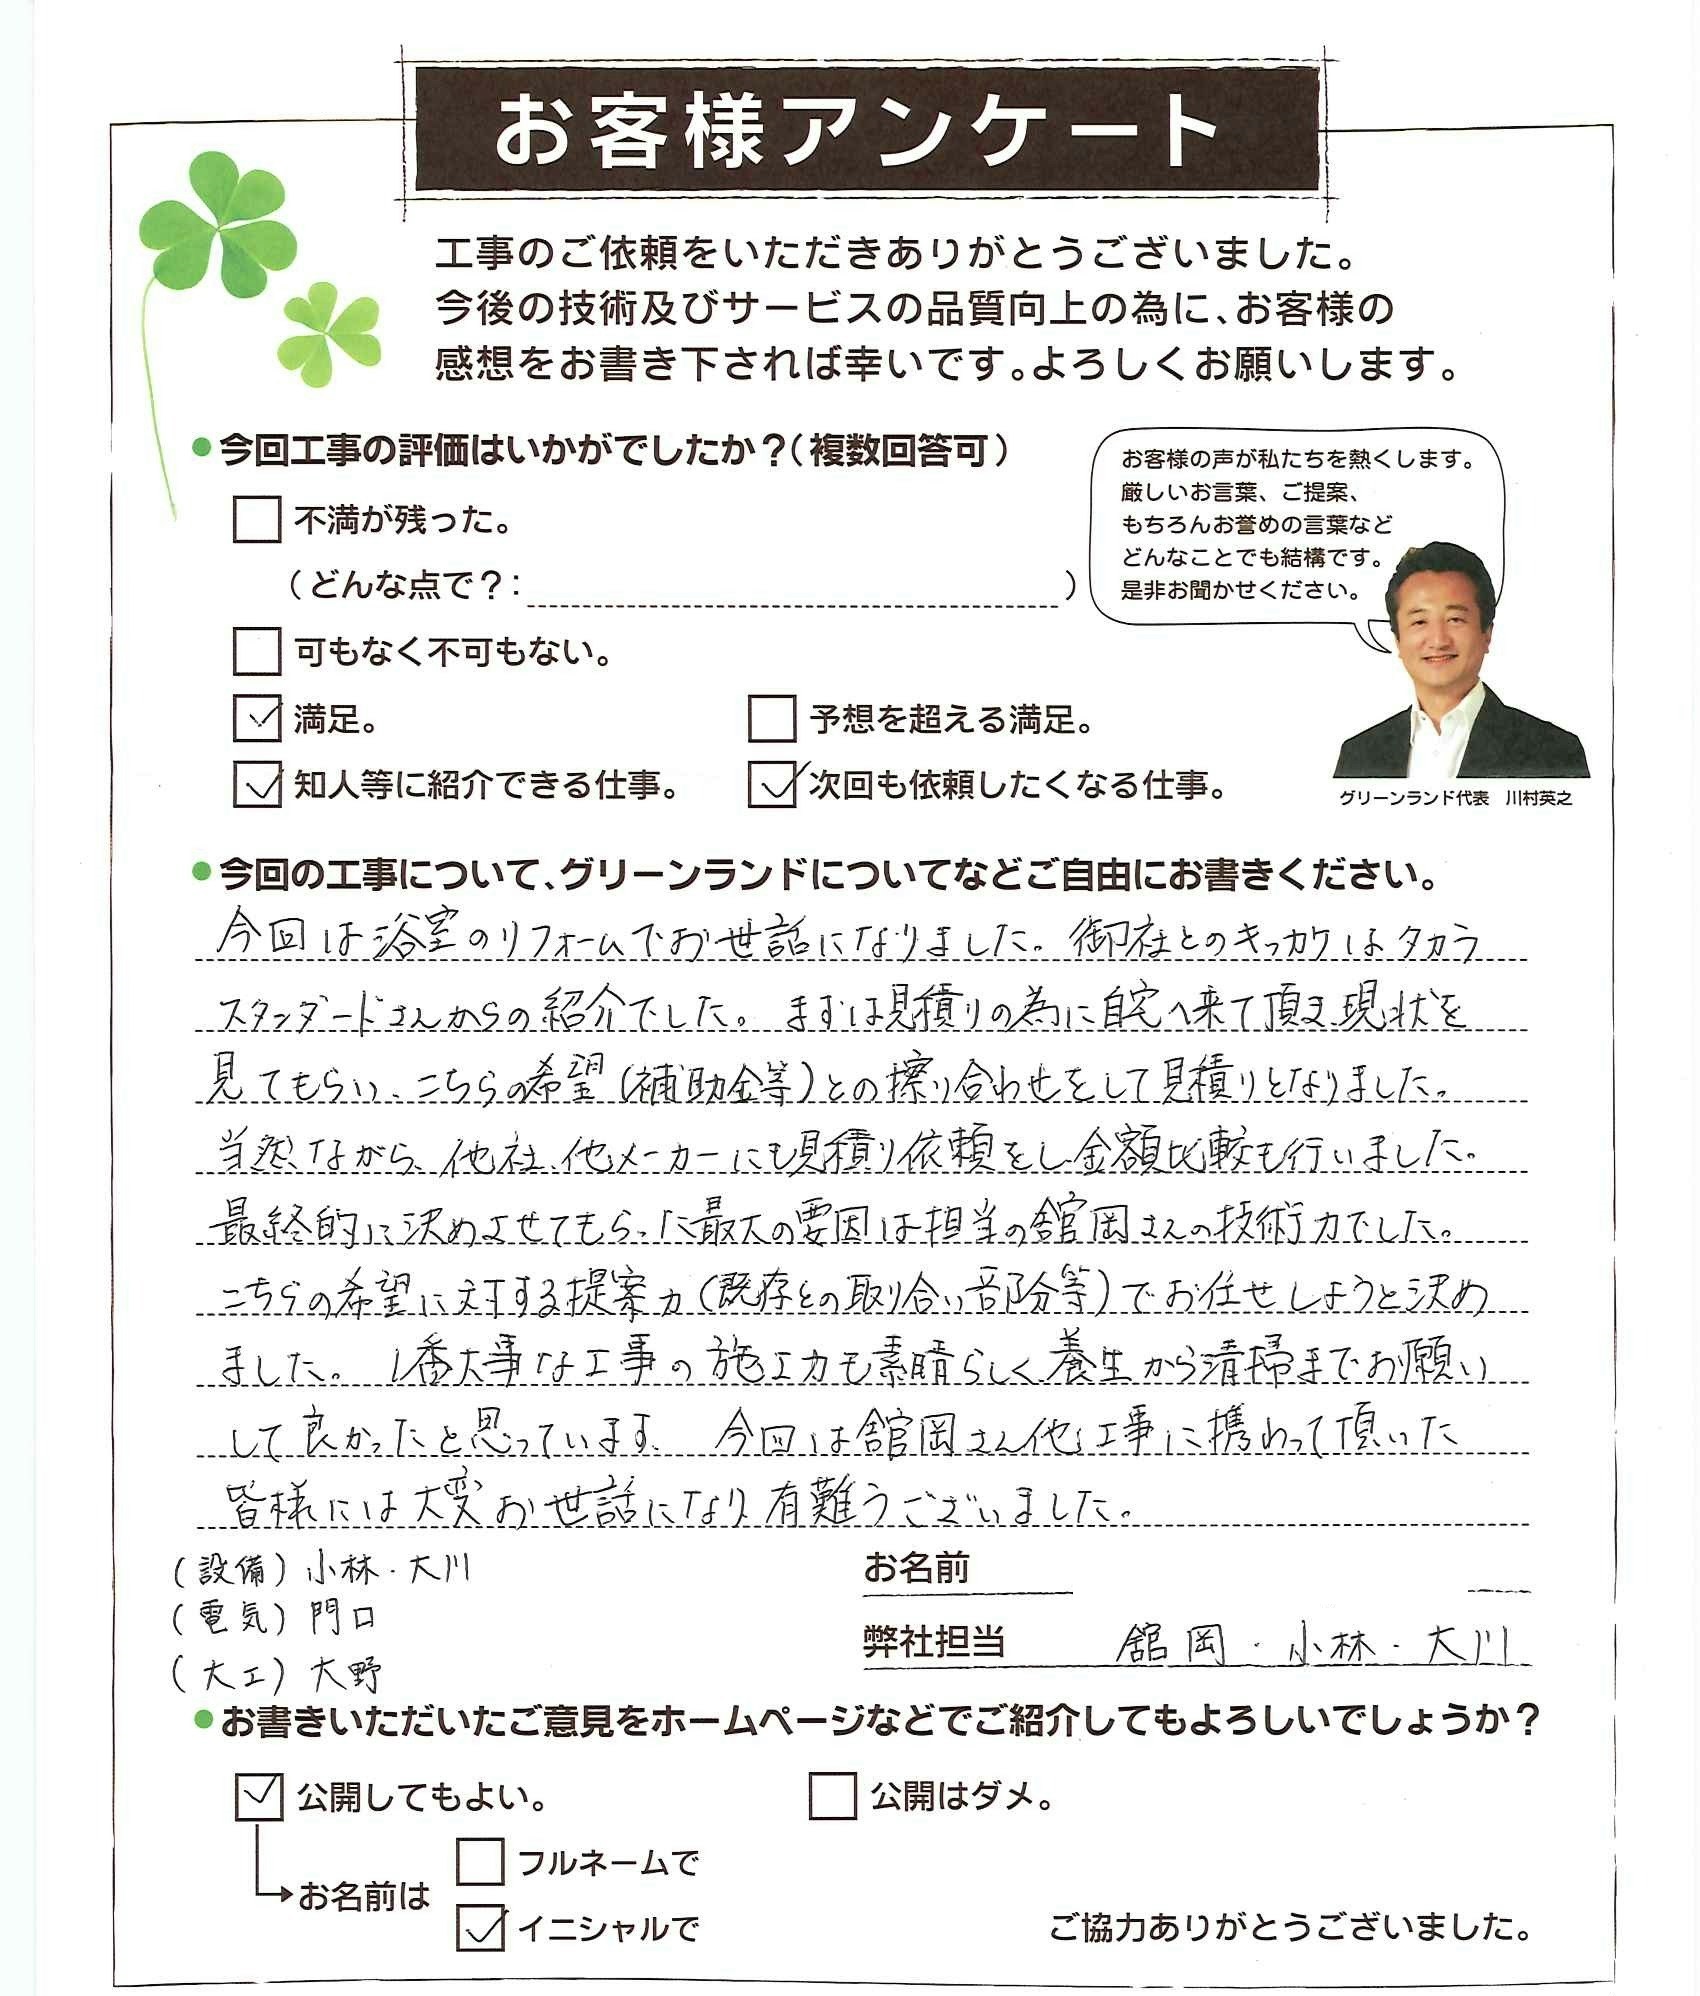 お客様アンケート
工事のご依頼をいただきありがとうございました。
今後の技術及びサービスの品質向上の為に、お客様の
感想をお書き下されば幸いです。よろしくお願いします。
●今回工事の評価はいかがでしたか？（複数回答可）
お客様の声が私たちを熱くします。
厳しいお言葉、ご提案、
もちろんお誉めの言葉など
どんなことでも結構です。
是非お聞かせください。
不満が残った。
（どんな点で？：　）
可もなく不可もない。
満足。　予想を超える満足。
知人等に紹介できる仕事。　次回も依頼したくなる仕事。
グリーンランド代表　川村英之
●今回の工事について、グリーンランドについてなどご自由にお書きください。
今回は浴室のリフォームでお世話になりました。御社とのキッカケはタカラ
スタンダードさんからの紹介でした。まずは見積りの為に自宅へ来て頂き現状を
見てもらい、こちらの希望（補助金等）との擦り合わせをして見積りとなりました。
当然ながら、他社、他メーカーにも見積り依頼をし金額比較も行いました。
最終的に決めさせてもらった最大の要因は担当の舘岡さんの技術力でした。
こちらの希望に対する提案力（既存との取り合い部分等）でお任せしようと決め
ました。1番大事な工事の施工力も素晴らしく養生から清掃までお願い
して良かったと思っています。今回は舘岡さん他工事に携わって頂いた
皆様には大変お世話になり有難うございました。
（設備）小林・大川
（電気）門口
（大工）大野
お名前
弊社担当　舘岡・小林・大川
●お書きいただいたご意見をホームページなどでご紹介してもよろしいでしょうか？
公開してもよい。　公開はダメ。
お名前は
フルネームで
イニシャルで
ご協力ありがとうございました。